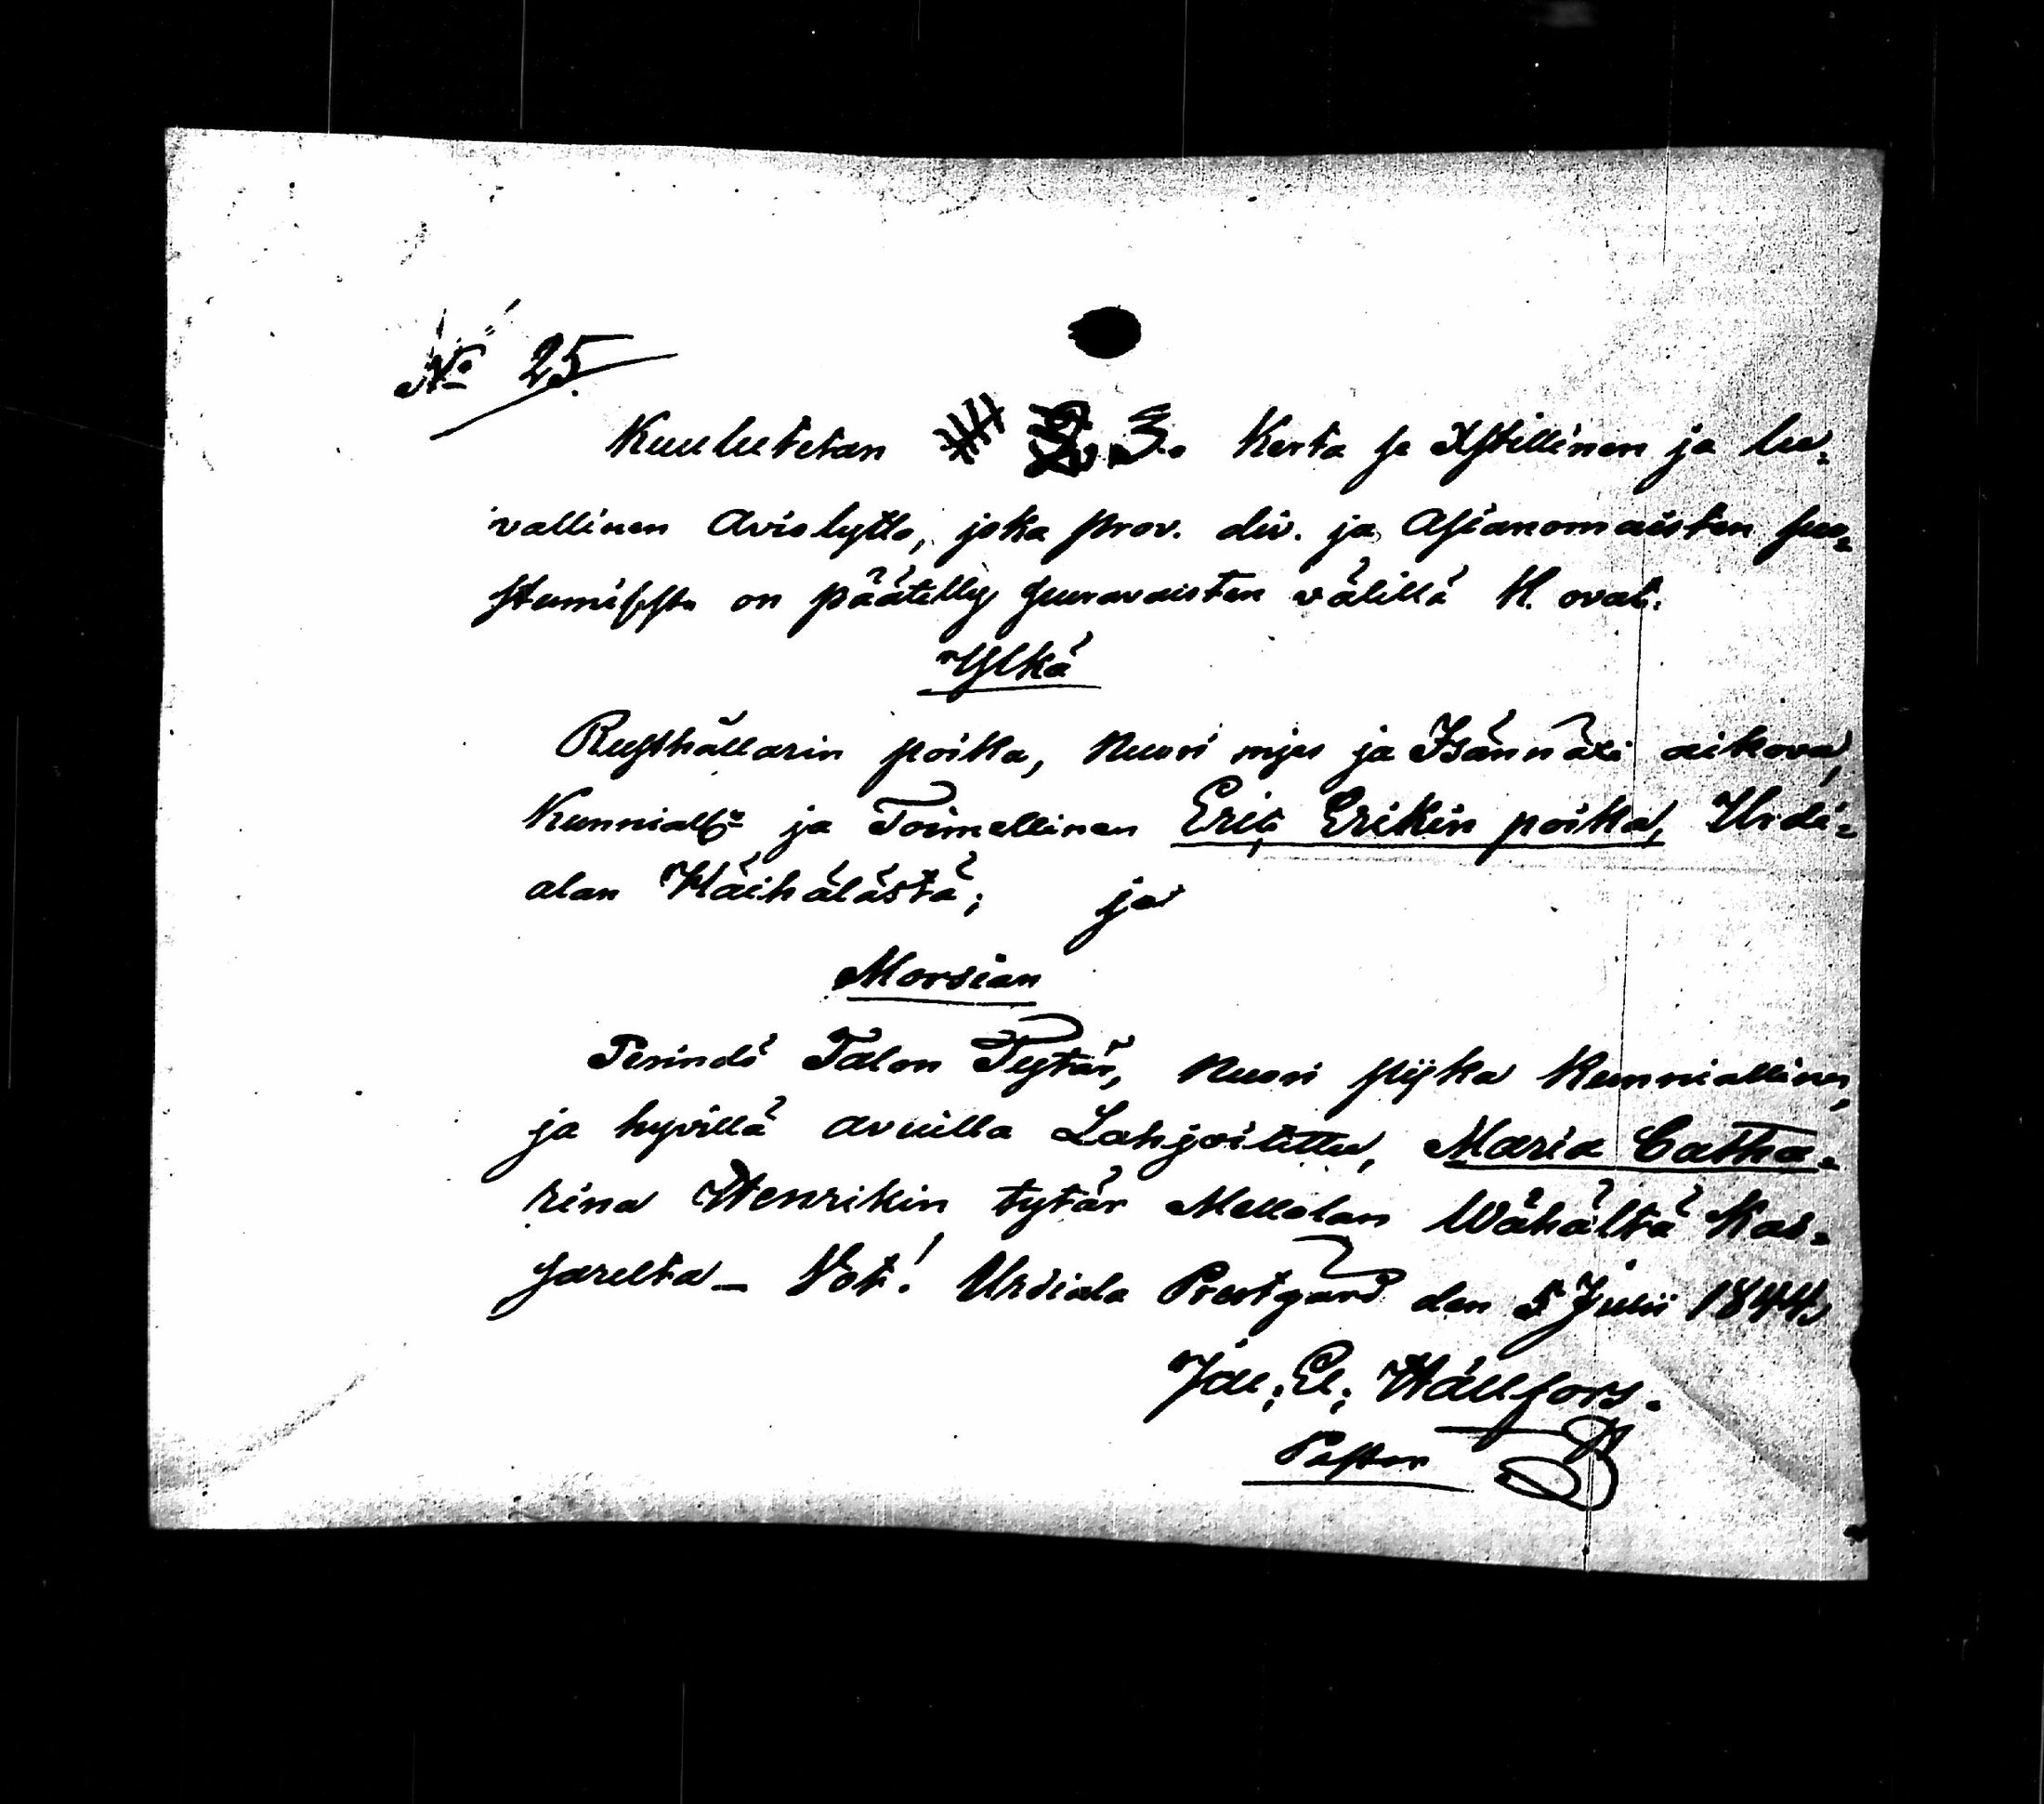 No 25.
Kuulutetan 3. Kerta se Xstillinen ja lu=
vallinen Avioliytto, joka prov. div. ja Asianomaisten suo=
stumisesta on päätetty seuravaisten välillä H. ovat:
Ylkä
Rusthållarin poika, Nuori mjes ja Isännäxi aikova,
Kunniall: ja Toimellinen Eric Erikin poika, Urdi=
alan Häihälästä; ja
Morsian
Perindö Talon Tytär, Nuori pijka Kunniallinen,
ja hyvillä avuilla Lahjoitettu, Maria Catha=
rina Henrikin tytär Mellolan Wähältä Kas=
sarelta_ Not! Urdiala Prestgård den 5 Julii 1844
Pastor